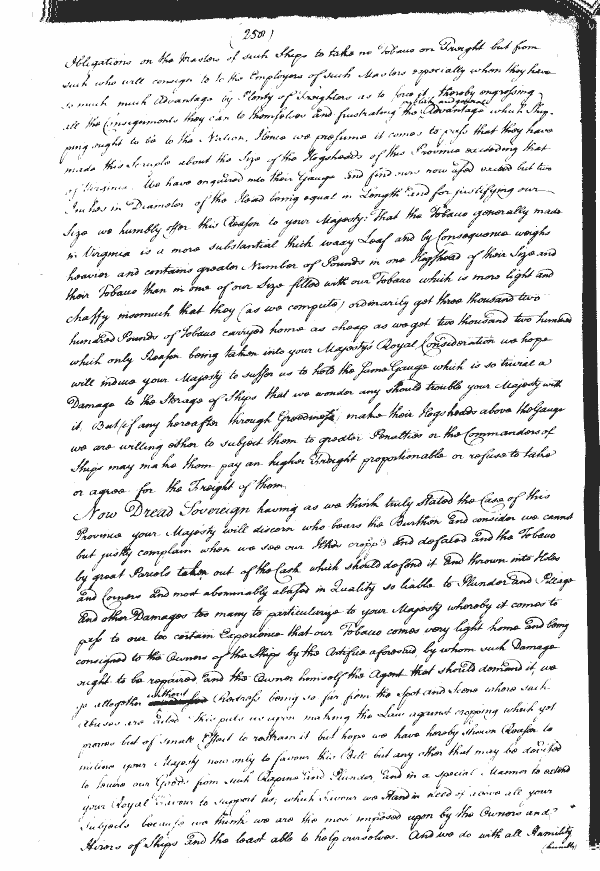 (258)
Obligations on the Masters of such Ships to take no Tobacco on Freight but from
such who will consign to the Employers of such Masters especially whom they have
so much much Advantage by Plenty of Freighters as to force it, thereby engrossing
all the Consignments they can to themselves and frustrating the Advantage which Ship-
ping ought to be to the Nation. Hence we presume it comes to pass that they have
made this Scruple about the Size of the Hogsheads of this Province exceeding that
of Virginia. We have enquired into their Gauge and find ours now used exceed but two
Inches in Diameter of the Head being equal in Length and for justifying our
Size we humbly offer this Reason to your Majesty: That the Tobacco generally made
in Virginia is a more substantial thick waxy Leaf and by Consequence weighs
heavier and contains greater Number of Pounds in one Hogshead of their Size and
their Tobacco than in one of our Size filled with our Tobacco which is more light and
chaffy insomuch that they (as we compute) ordinarily get three thousand two
hundred Pounds of Tobacco carryed home as cheap as we get two thousand two hundred
which only Reason being taken into your Majesty's Royal Consideration we hope
will induce your Majesty to suffer us to hold the same Gauge which is so trivial a
Damage to the Storage of Ships that we wonder any should trouble your Majesty with
it. But if any hereafter through Greediness, make their Hogsheads above the Gauge
we are willing either to subject them to greater Penalties or the Commanders of
Ships may make them pay an higher Freight proportionable or refuse to take
or agree for the Freight of them.
Now Dread Sovereign having as we think truly stated the Case of this
Province your Majesty will discern who bears the Burthen and consider we cannot
but justly complain when we see our cropp'd and defaced and the Tobacco
by great Parcels taken out of the Cask which should defend it and thrown into Holes
and Corners and most abominably abused in Quality so liable to Plunder and Pillage
and other Damages too many to particularize to your Majesty whereby it comes to
pass to our too certain Experience that our Tobacco comes very light home and being
consigned to the Owners of the Ships by the Artifice aforesaid by whom such Damage
ought to be repaired and the Owner himself the Agent that should demand it, we
go altogether without Redress being so far from the Spot and Scene where such
Abuses are acted this puts us upon making the Law against cropping which yet
proves but of small Effect to restrain it but hope we have hereby shown Reason to
incline your Majesty now only to favour this Bill but any other that may be devised
to secure our Goods from such Rapine and Plunder, and in a special Manner to extend
your Royal Favour to support us; which Favour we stand in need of above all your
Subjects because we think we are the most imposed upon by the Owners and
Hirers of Ships and the least able to help ourselves. And we do with all Humility
(humbly)